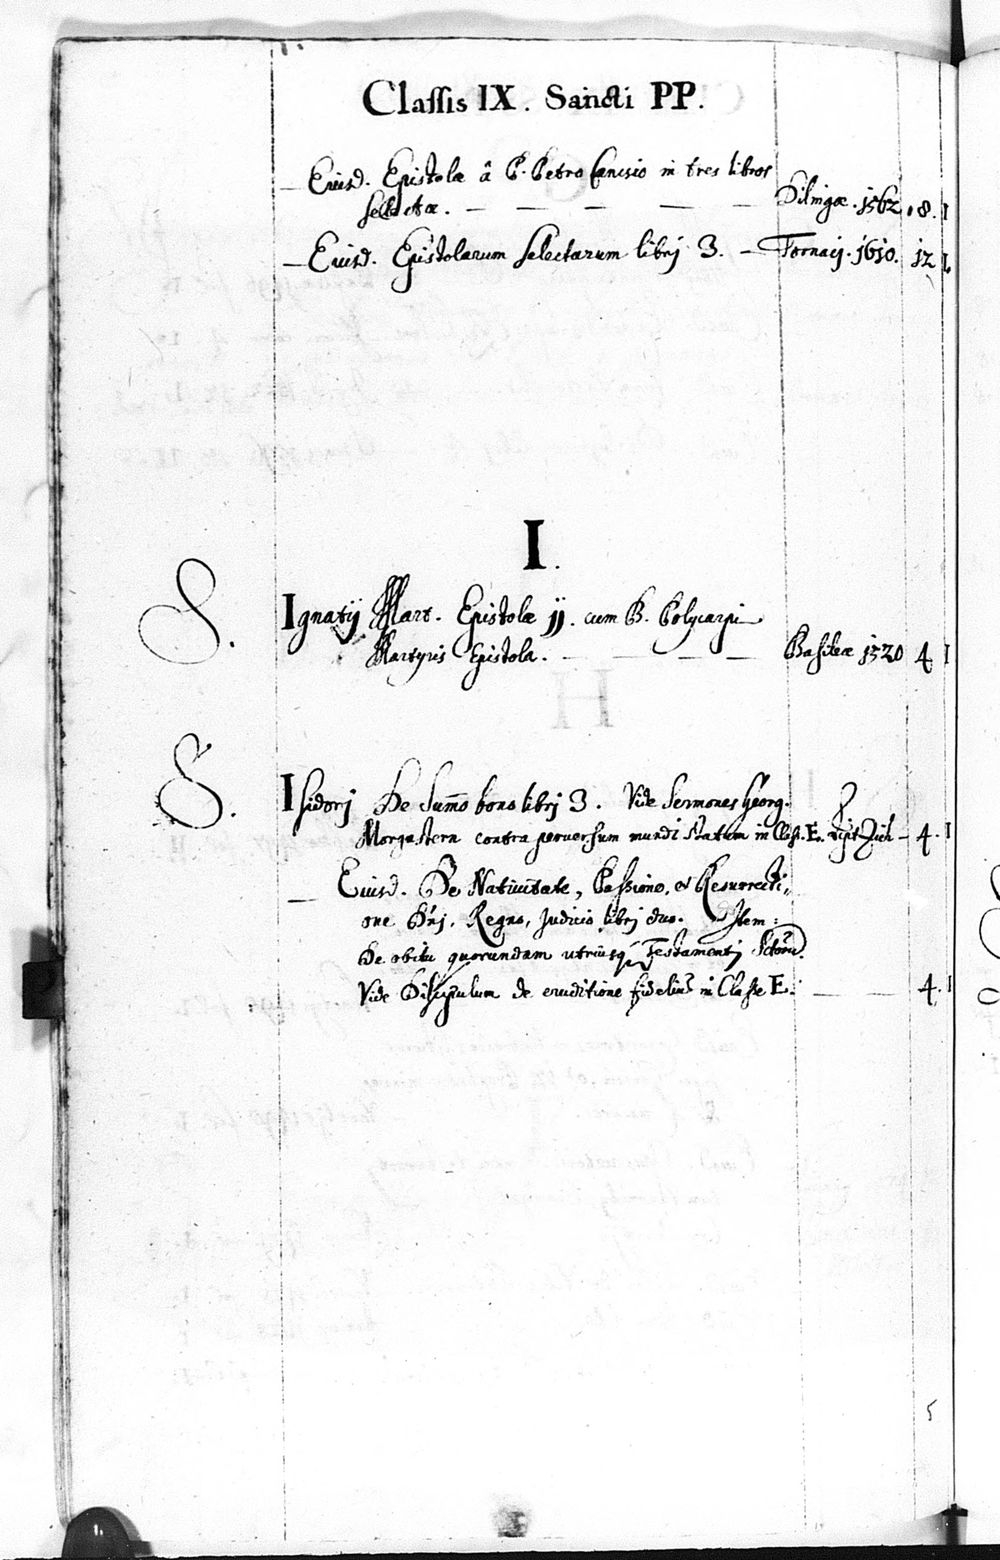 Classis IX. Sancti PP.
— Eiusd. Epistolæ â P. Petro Canisio in tres libros
selectæ. — — — — — Dilingæ. 1562. 8. I
— Eiusd. Epistolarum selectarum librj 3. — Tornacij. 1610. 12 I
I.
S. Ignatij Mart. Epistolæ jj. cum B. Polycarpi
Martyris Epistola. — — — — Basileæ 1520 4 I
S. Isidorj De Sum̃o bono librj 3. Vide Sermones Georg.
Morgastern contra perversum mundi statum in Class. E. 4. I
— Eiusd. De Nativitate, Passione, et Resurrecti,,
one Dñj, Regno, Judicio librj duo. Item:
De obitu quorundam utriusq́ Testamentj Sctorũ.
Vide Discipulum de eruditione fidelium in Classe E. — — 4. I
5